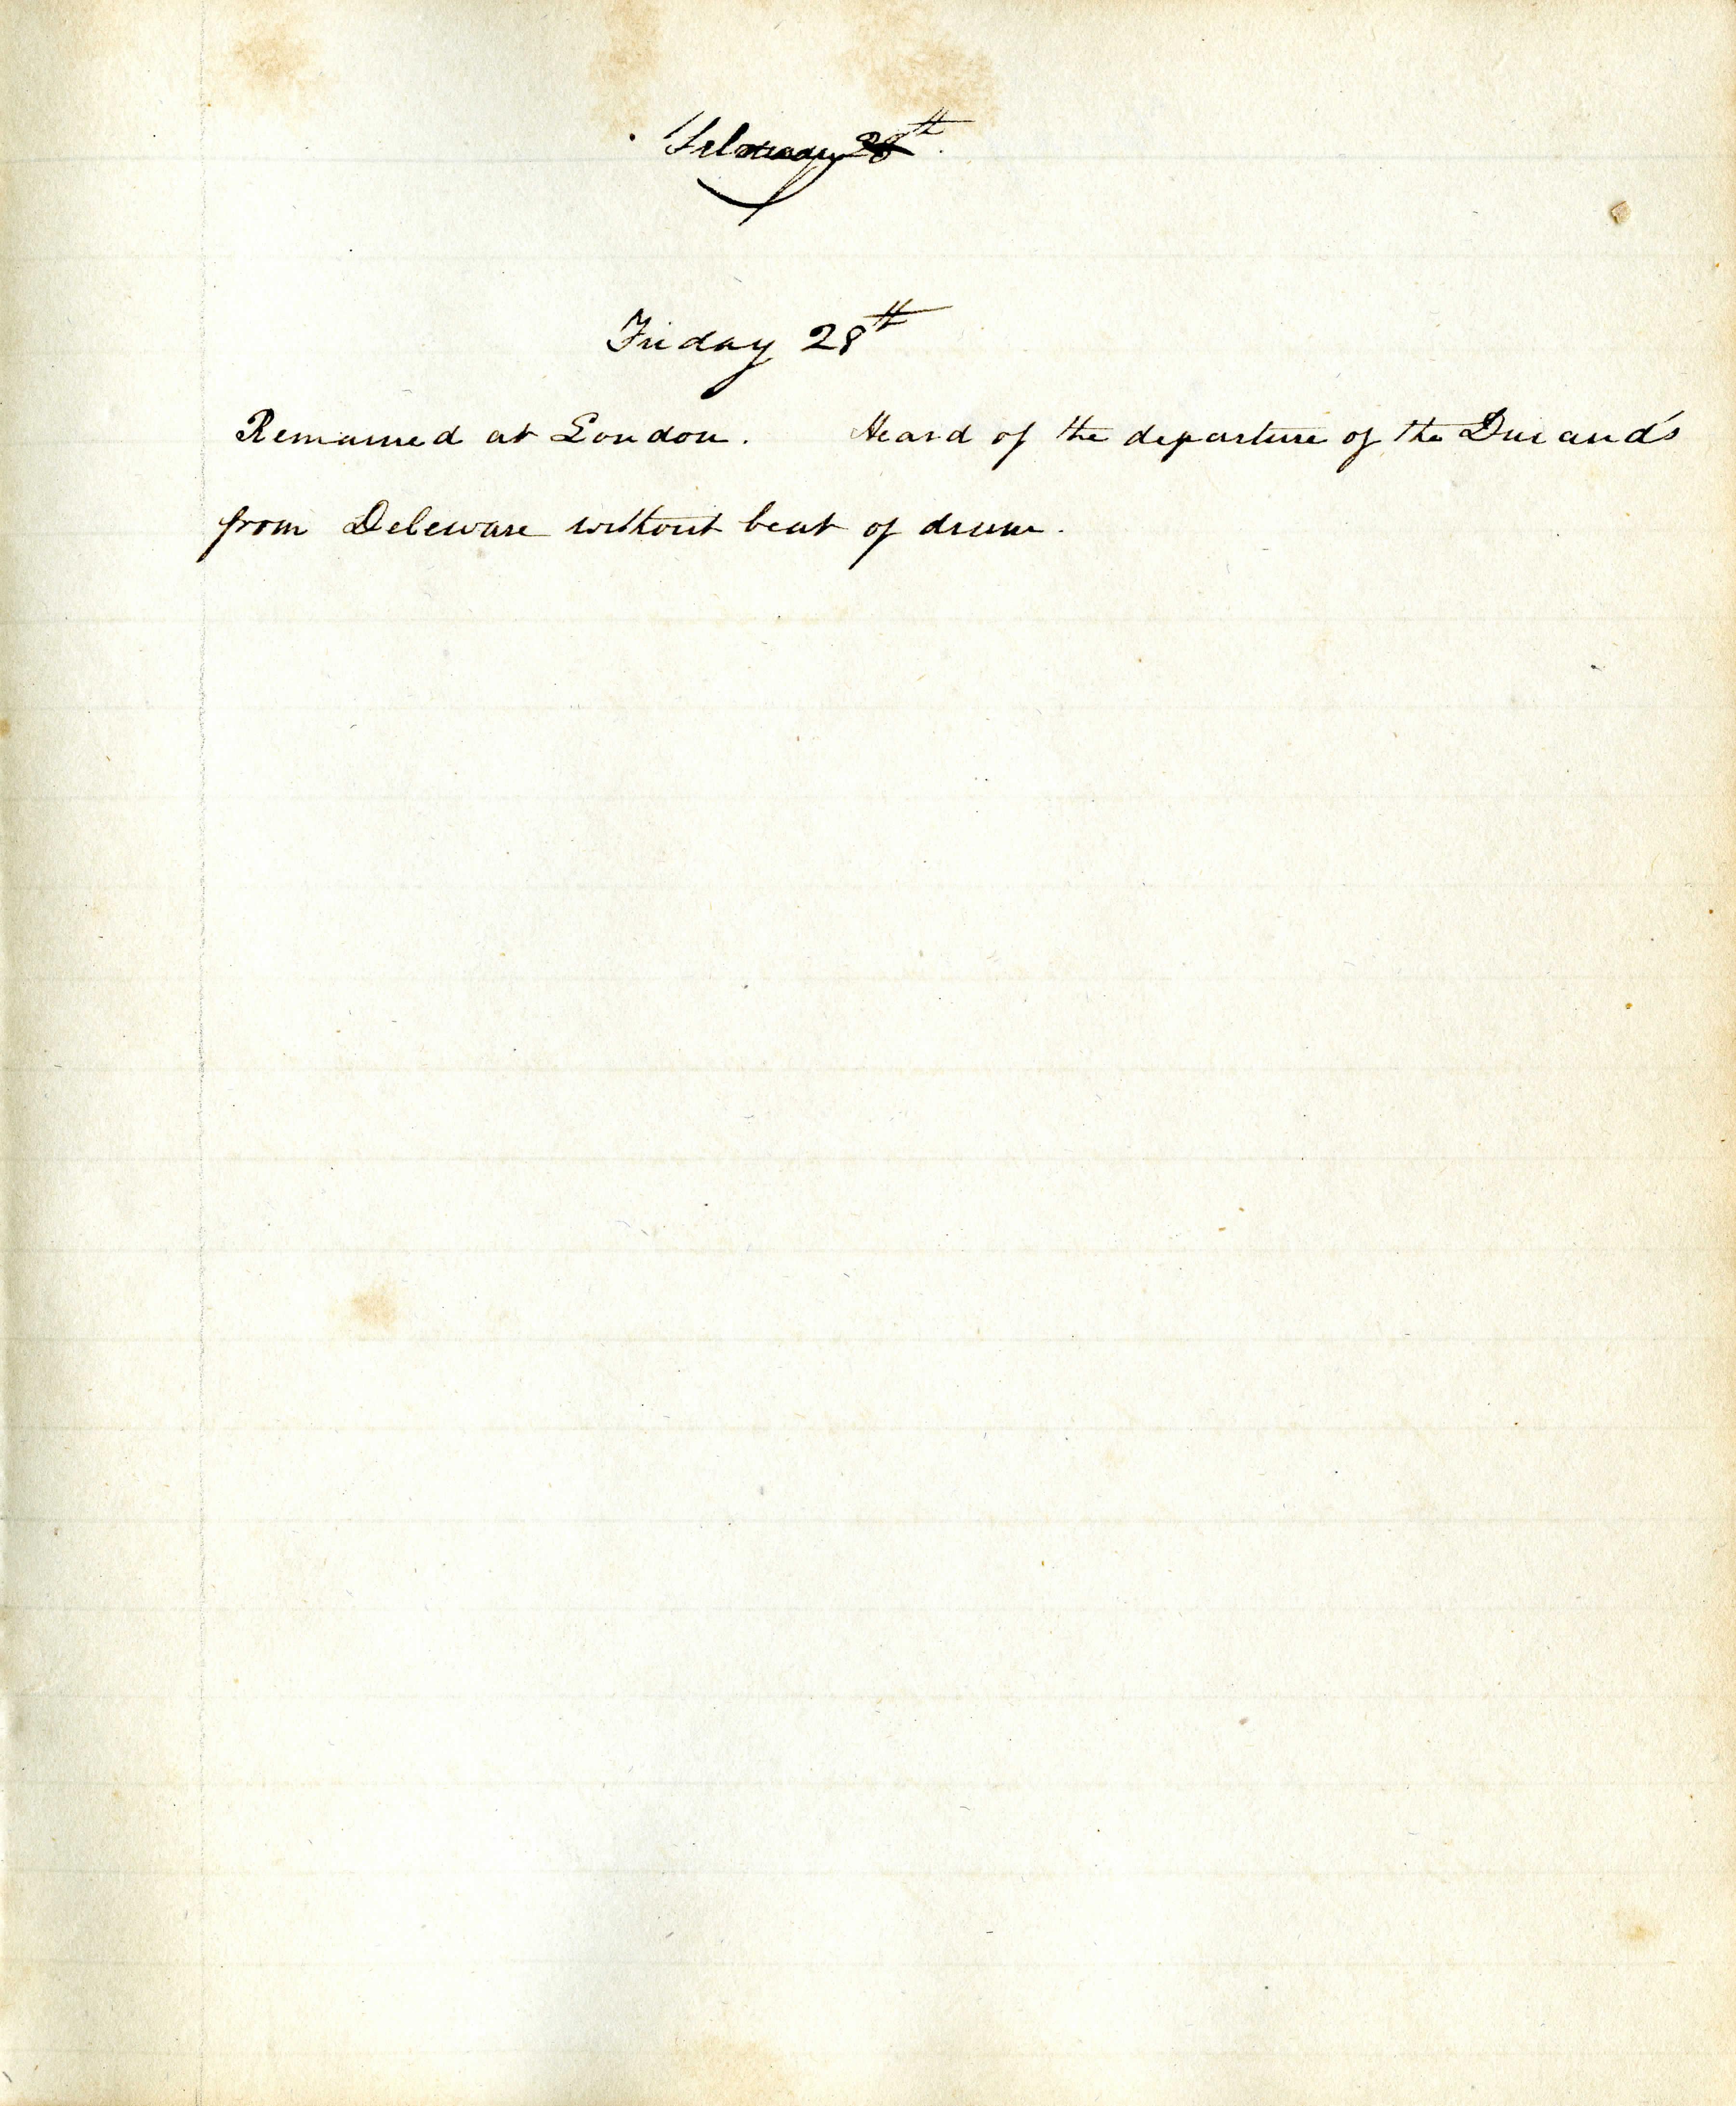 February 28th.
Friday 28th
Remained at London. Heard of the departure of the Durand's
from Deleware without beat of drum.